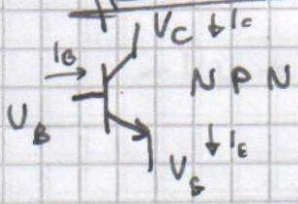 V_C ↓ I_C
I_B → N P N
U_B
V_E ↓ I_E